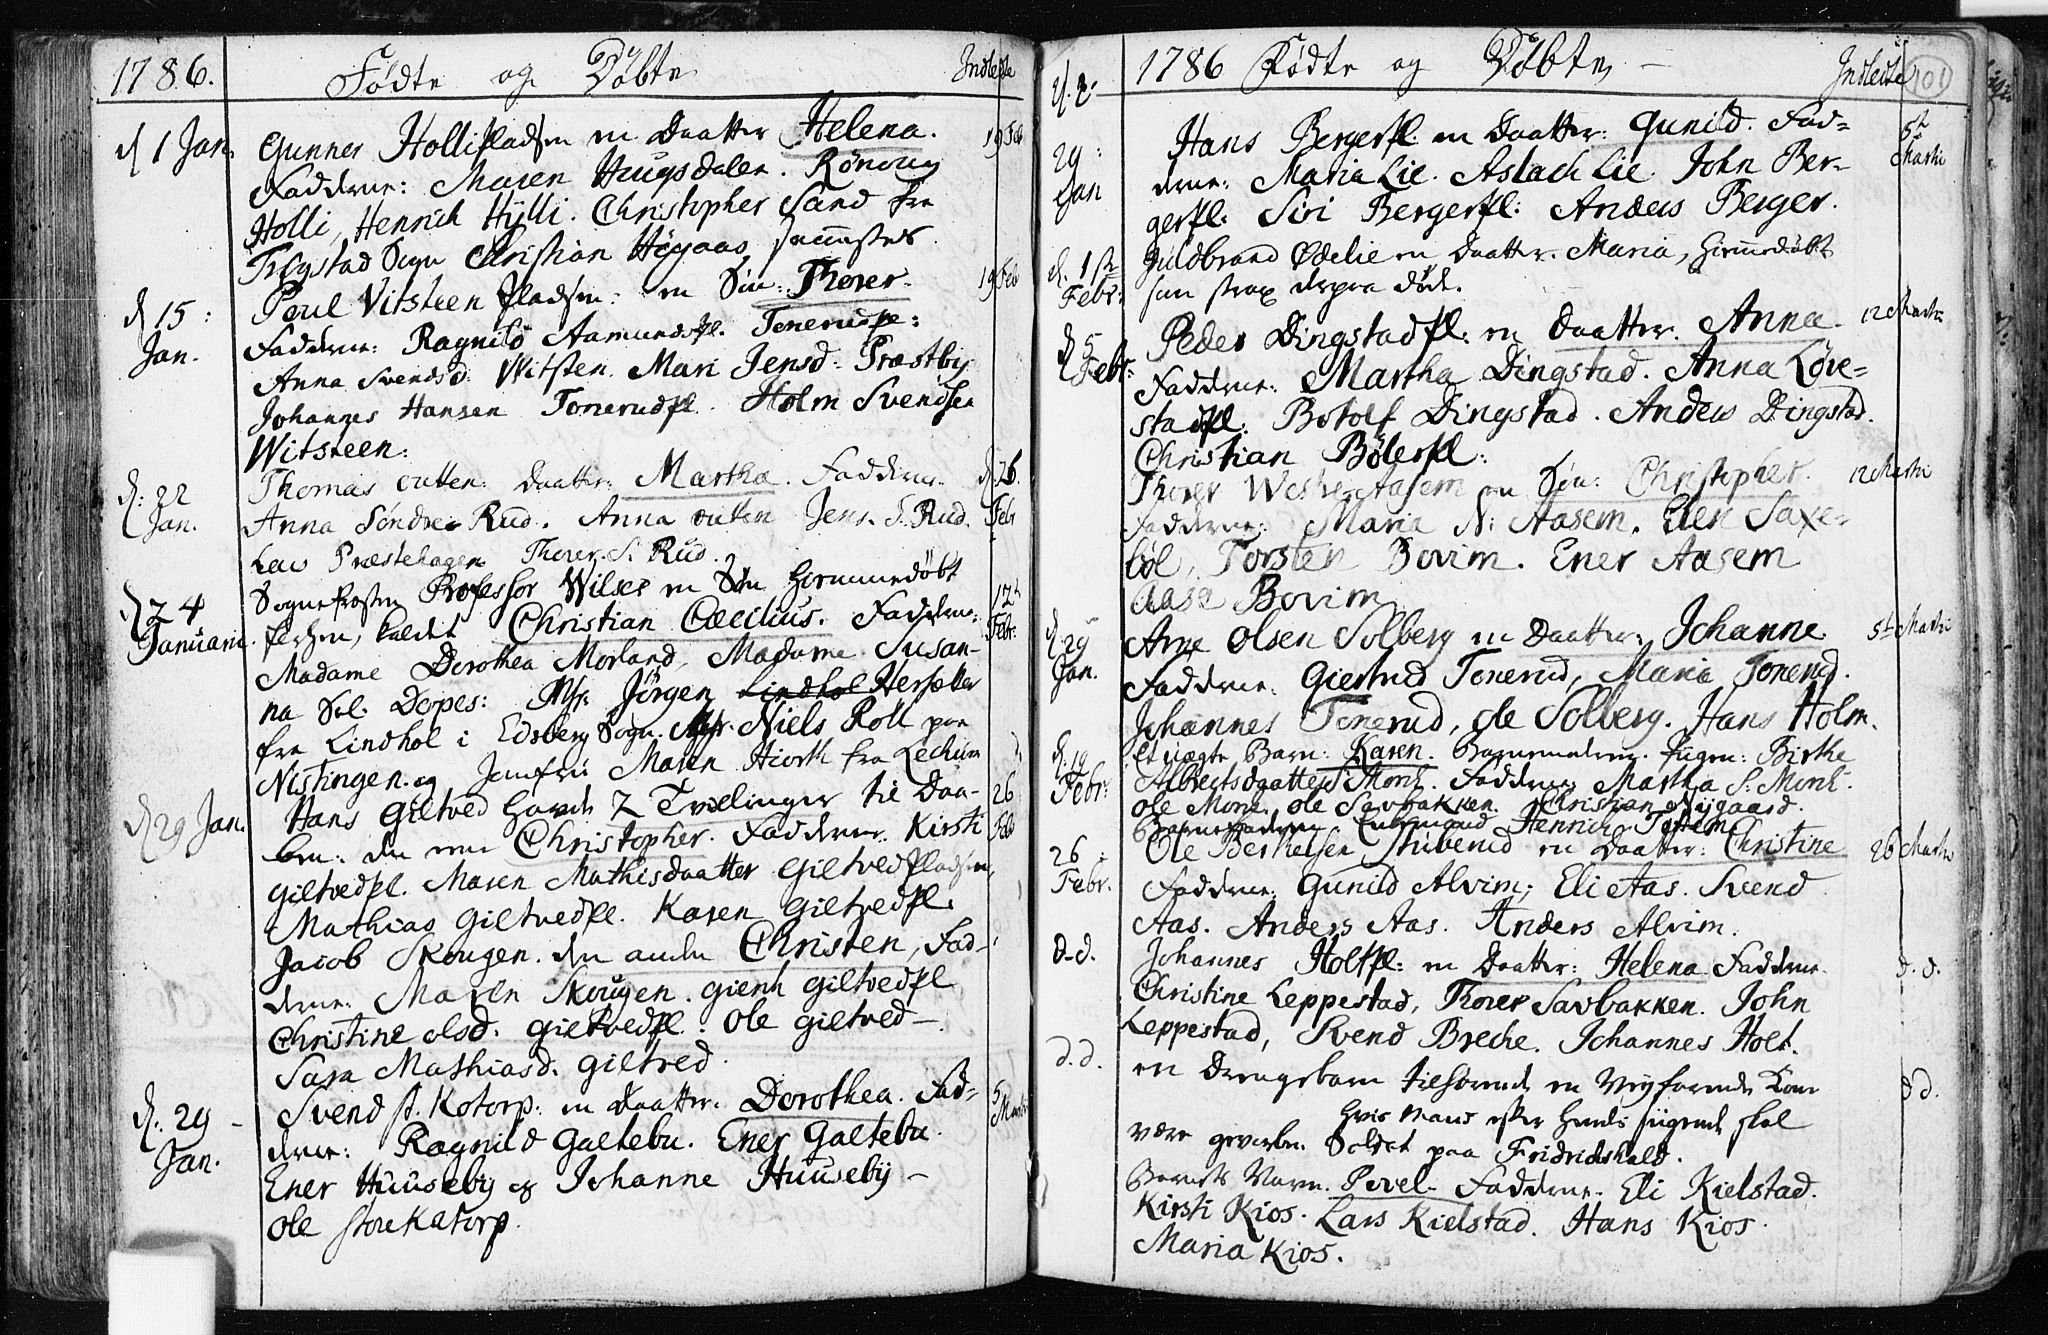 1786. Fødte og Døbte Indledte
d 1 Jan. Gunner Holli pladsen en Daatter Helena. 19 Feb
Fadderne: Maren Haugsdalen. Rønnoug
Holli, Henrich Hÿlli. Christopher Sand fra
Trygstad Sogn Christian Høgaas
d 15 Jan. Poul Vitsteen pladsen: en Søn: Thorer. 19 Feb
Fadderne: Ragnild Aamundspl. Tonerudpl:
Anna Svendsd: Witsten. Mari Jensd: Præstby
Johannes Hansen Tonerudpl. Holm Svendsen
Witsteen:
d: 22 Jan. Thomas outen: Daatter: Martha. Fadderne. d 26 Febr
Anna Søndre Rud. Anna outen Jens. S. Rud.
Lars Præstehagen Thorer. S. Rud.
d 24 Januarii. Sognepræsten Professor Wilses en Søn hiemmedøbt 12t Febr:
kaldet Christian Cæcilius. Fadderne:
Madame Dorothea Morland, Madame Susan-
na Sal. Dopes: Msr. Jörgen Lindhol Hersætter
fra Lindhol i Edsberg Sogn. Msr. Niels Roll paa
Nistingen. og Jomfru Maren Hiorth fra Lechum
d 29 Jan. Hans Gieltved havde 2 Tvillinger til Daa- 26 Feb
ben: den eene Christopher. Fadderne. Kirsti
Gieltvedpl. Maren Mathisdaatter Gieltvedpladsen,
Mathias Gieltvedpl. Karen Gieltvedpl.
Jacob Skougen. den anden Christen, Fad-
derne: Maren Skougen. Gieltvedpl
Christine olsd: Gieltvedpl: Ole Gieltved-
Sara Mathiasd. Gieltved.
d. 29 Jan. Svend st. Kotorp: en Daatter. Dorothea. Fad- 5 Martii
derne: Ragnild Galtebu. Ener Galtebu.
Ener Huuseby og Johanne Huuseby -
Ole store Katorp.
1786 Fødte og Døbte - Indledte 101
29: Jan Hans Bergerpl. en Daatter: Gunild. Fad- 5te Martii
derne: Maria Lie. Aslach Lie. John Ber-
gerpl: Siri Bergerpl: Anders Berger.
d. 1ste Febr: Guldbrand Ødelie en Daatter. Maria, hiemmedøbt
som strax derpaa døde.
d 5 Febr: Peder Dingstadpl: en Daatter. Anna. 12 Martii
Fadderne: Martha Dingstad. Anna Løve-
stadpl: Botolf Dingstad. Anders Dingstad.
Christian Bølerpl:
Thorer Westre Aasem en Søn: Christopher. 12 Martii
Fadderne: Maria N: Aasem. Elen Saxe-
bøl, Torsten Bovim. Ener Aasem
Aase Bovim
d. 29 Jan. Arne Olsen Solberg en Daatter: Johanne. 5te Martii
Fadderne: Giertrud Tonerud, Maria Tonerud.
Johannes Tonerud, Ole Solberg. Hans Holm.
d. 19 Febr: Et uægte Barn: Karen. Barnemoderen: Pigen: Birthe
Albertsdaatter S: Mont. Fadderne Martha S: Mont:
Ole Mona. Ole Savbakken. Christian Nygaard.
Barnefaderen Henrich
26: Febr. Ole Berthelsen Stuberud en Daatter: Christine 26 Martii
Fadderne: Gunild Alvim; Eli Aas. Svend
Aas. Anders Aas. Anders Alvim.
d-d. Johannes Holtpl: en Daatter: Helena Fadderne. d. d.
Christine Leppestad, Thorer Savbakken. John
Leppestad, Svend Breche. Johannes Holt.
d. d. en Drengebarn tilhørende en Veyfarende Kone d d.
hvis Mand efter hendes sigende skal
være geworben Soldat paa Fridrichshald.
Barnets Navn. Povel. Fadderne. Eli Kielstad.
Kirsti Kios. Lars Kielstad. Hans Kios.
Maria Kios.